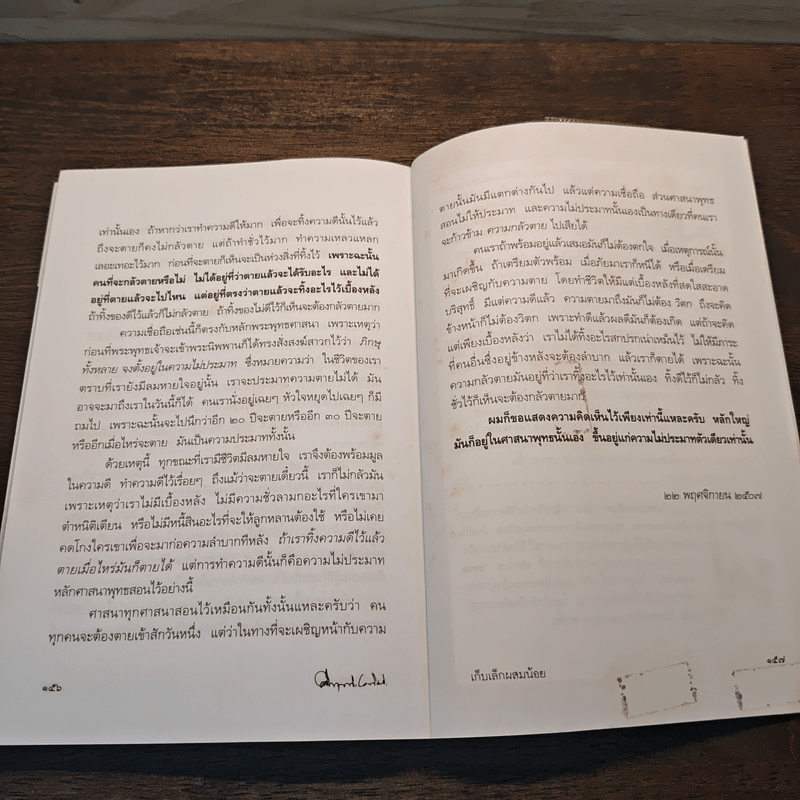 เท่านั้นเอง ถ้าหากว่าเราทำความดีให้มาก เพื่อจะทิ้งความดีนั้นไว้แล้ว
ถึงจะตายก็คงไม่กลัวตาย แต่ถ้าทำชั่วไว้มาก ทำความเหลวแหลก
เลอะเทอะไว้มาก ก่อนที่จะตายก็เห็นจะเป็นห่วงสิ่งที่ทิ้งไว้ เพราะฉะนั้น
คนที่จะกลัวตายหรือไม่ ไม่ได้อยู่ที่ว่าตายแล้วจะได้รับอะไร และไม่ได้
อยู่ที่ตายแล้วจะไปไหน แต่อยู่ที่ตรงว่าตายแล้วจะทิ้งอะไรไว้เบื้องหลัง
ถ้าทิ้งของดีไว้แล้วก็ไม่กลัวตาย ถ้าทิ้งของไม่ดีไว้ก็เห็นจะต้องกลัวตายมาก
ความเชื่อถือเช่นนี้ก็ตรงกับหลักพระพุทธศาสนา เพราะเหตุว่า
ก่อนที่พระพุทธเจ้าจะเข้าพระนิพพานก็ได้ทรงสั่งสงฆ์สาวกไว้ว่า ภิกษุ
ทั้งหลาย จงตั้งอยู่ในความไม่ประมาท ซึ่งหมายความว่า ในชีวิตของเรา
ตราบที่เรายังมีลมหายใจอยู่นั้น เราจะประมาทความตายไม่ได้ มัน
อาจจะมาถึงเราในวันนี้ก็ได้ คนเรานั่งอยู่เฉยๆ หัวใจหยุดไปเฉยๆ ก็มี
ถมไป เพราะฉะนั้นจะไปนึกว่าอีก ๒๐ ปีจะตายหรืออีก ๓๐ ปีจะตาย
หรืออีกเมื่อไหร่จะตาย มันเป็นความประมาททั้งนั้น
ด้วยเหตุนี้ ทุกขณะที่เรามีชีวิตมีลมหายใจ เราจึงต้องพร้อมมูล
ในความดี ทำความดีไว้เรื่อยๆ ถึงแม้ว่าจะตายเดี๋ยวนี้ เราก็ไม่กลัวมัน
เพราะเหตุว่าเราไม่มีเบื้องหลัง ไม่มีความชั่วลามกอะไรที่ใครเขามา
ตำหนิติเตียน หรือไม่มีหนี้สินอะไรที่จะให้ลูกหลานต้องใช้ หรือไม่เคย
คดโกงใครเขาเพื่อจะมาก่อความลำบากทีหลัง ถ้าเราทิ้งความดีไว้แล้ว
ตายเมื่อไหร่มันก็ตายได้ แต่การทำความดีนั้นก็คือความไม่ประมาท
หลักศาสนาพุทธสอนไว้อย่างนี้
ศาสนาทุกศาสนาสอนไว้เหมือนกันทั้งนั้นแหละครับว่า คน
ทุกคนจะต้องตายเข้าสักวันหนึ่ง แต่ว่าในทางที่จะเผชิญหน้ากับความ
๑๕๖
ตายนั้นมันมีแตกต่างกันไป แล้วแต่ความเชื่อถือ ส่วนศาสนาพุทธ
สอนไม่ให้ประมาท และความไม่ประมาทนั้นเองเป็นทางเดียวที่คนเรา
จะก้าวข้าม ความกลัวตาย ไปเสียได้
คนเราถ้าพร้อมอยู่แล้วเสมอมันก็ไม่ต้องตกใจ เมื่อเหตุการณ์นั้น
มาเกิดขึ้น ถ้าเตรียมตัวพร้อม เมื่อภัยมาเราก็หนีได้ หรือเมื่อเตรียม
ที่จะเผชิญกับความตาย โดยทำชีวิตให้มีแต่เบื้องหลังที่สดใสสะอาด
บริสุทธิ์ มีแต่ความดีแล้ว ความตายมาถึงมันก็ไม่ต้อง วิตก ถึงจะคิด
ข้างหน้าก็ไม่ต้องวิตก เพราะทำดีแล้วผลดีมันก็ต้องเกิด แต่ถ้าจะคิด
แต่เพียงเบื้องหลังว่า เราไม่ได้ทิ้งอะไรสกปรกเน่าเหม็นไว้ ไม่ให้มีภาระ
ที่คนอื่นซึ่งอยู่ข้างหลังจะต้องลำบาก แล้วเราก็ตายได้ เพราะฉะนั้น
ความกลัวตายมันอยู่ที่ว่าเราทิ้งอะไรไว้เท่านั้นเอง ทิ้งดีไว้ก็ไม่กลัว ทิ้ง
ชั่วไว้ก็เห็นจะต้องกลัวตายมาก
ผมก็ขอแสดงความคิดเห็นไว้เพียงเท่านี้แหละครับ หลักใหญ่
มันก็อยู่ในศาสนาพุทธนั้นเอง ขึ้นอยู่แก่ความไม่ประมาทตัวเดียวเท่านั้น
๒๒ พฤศจิกายน ๒๕๐๗
๑๕๗
เก็บเล็กผสมน้อย